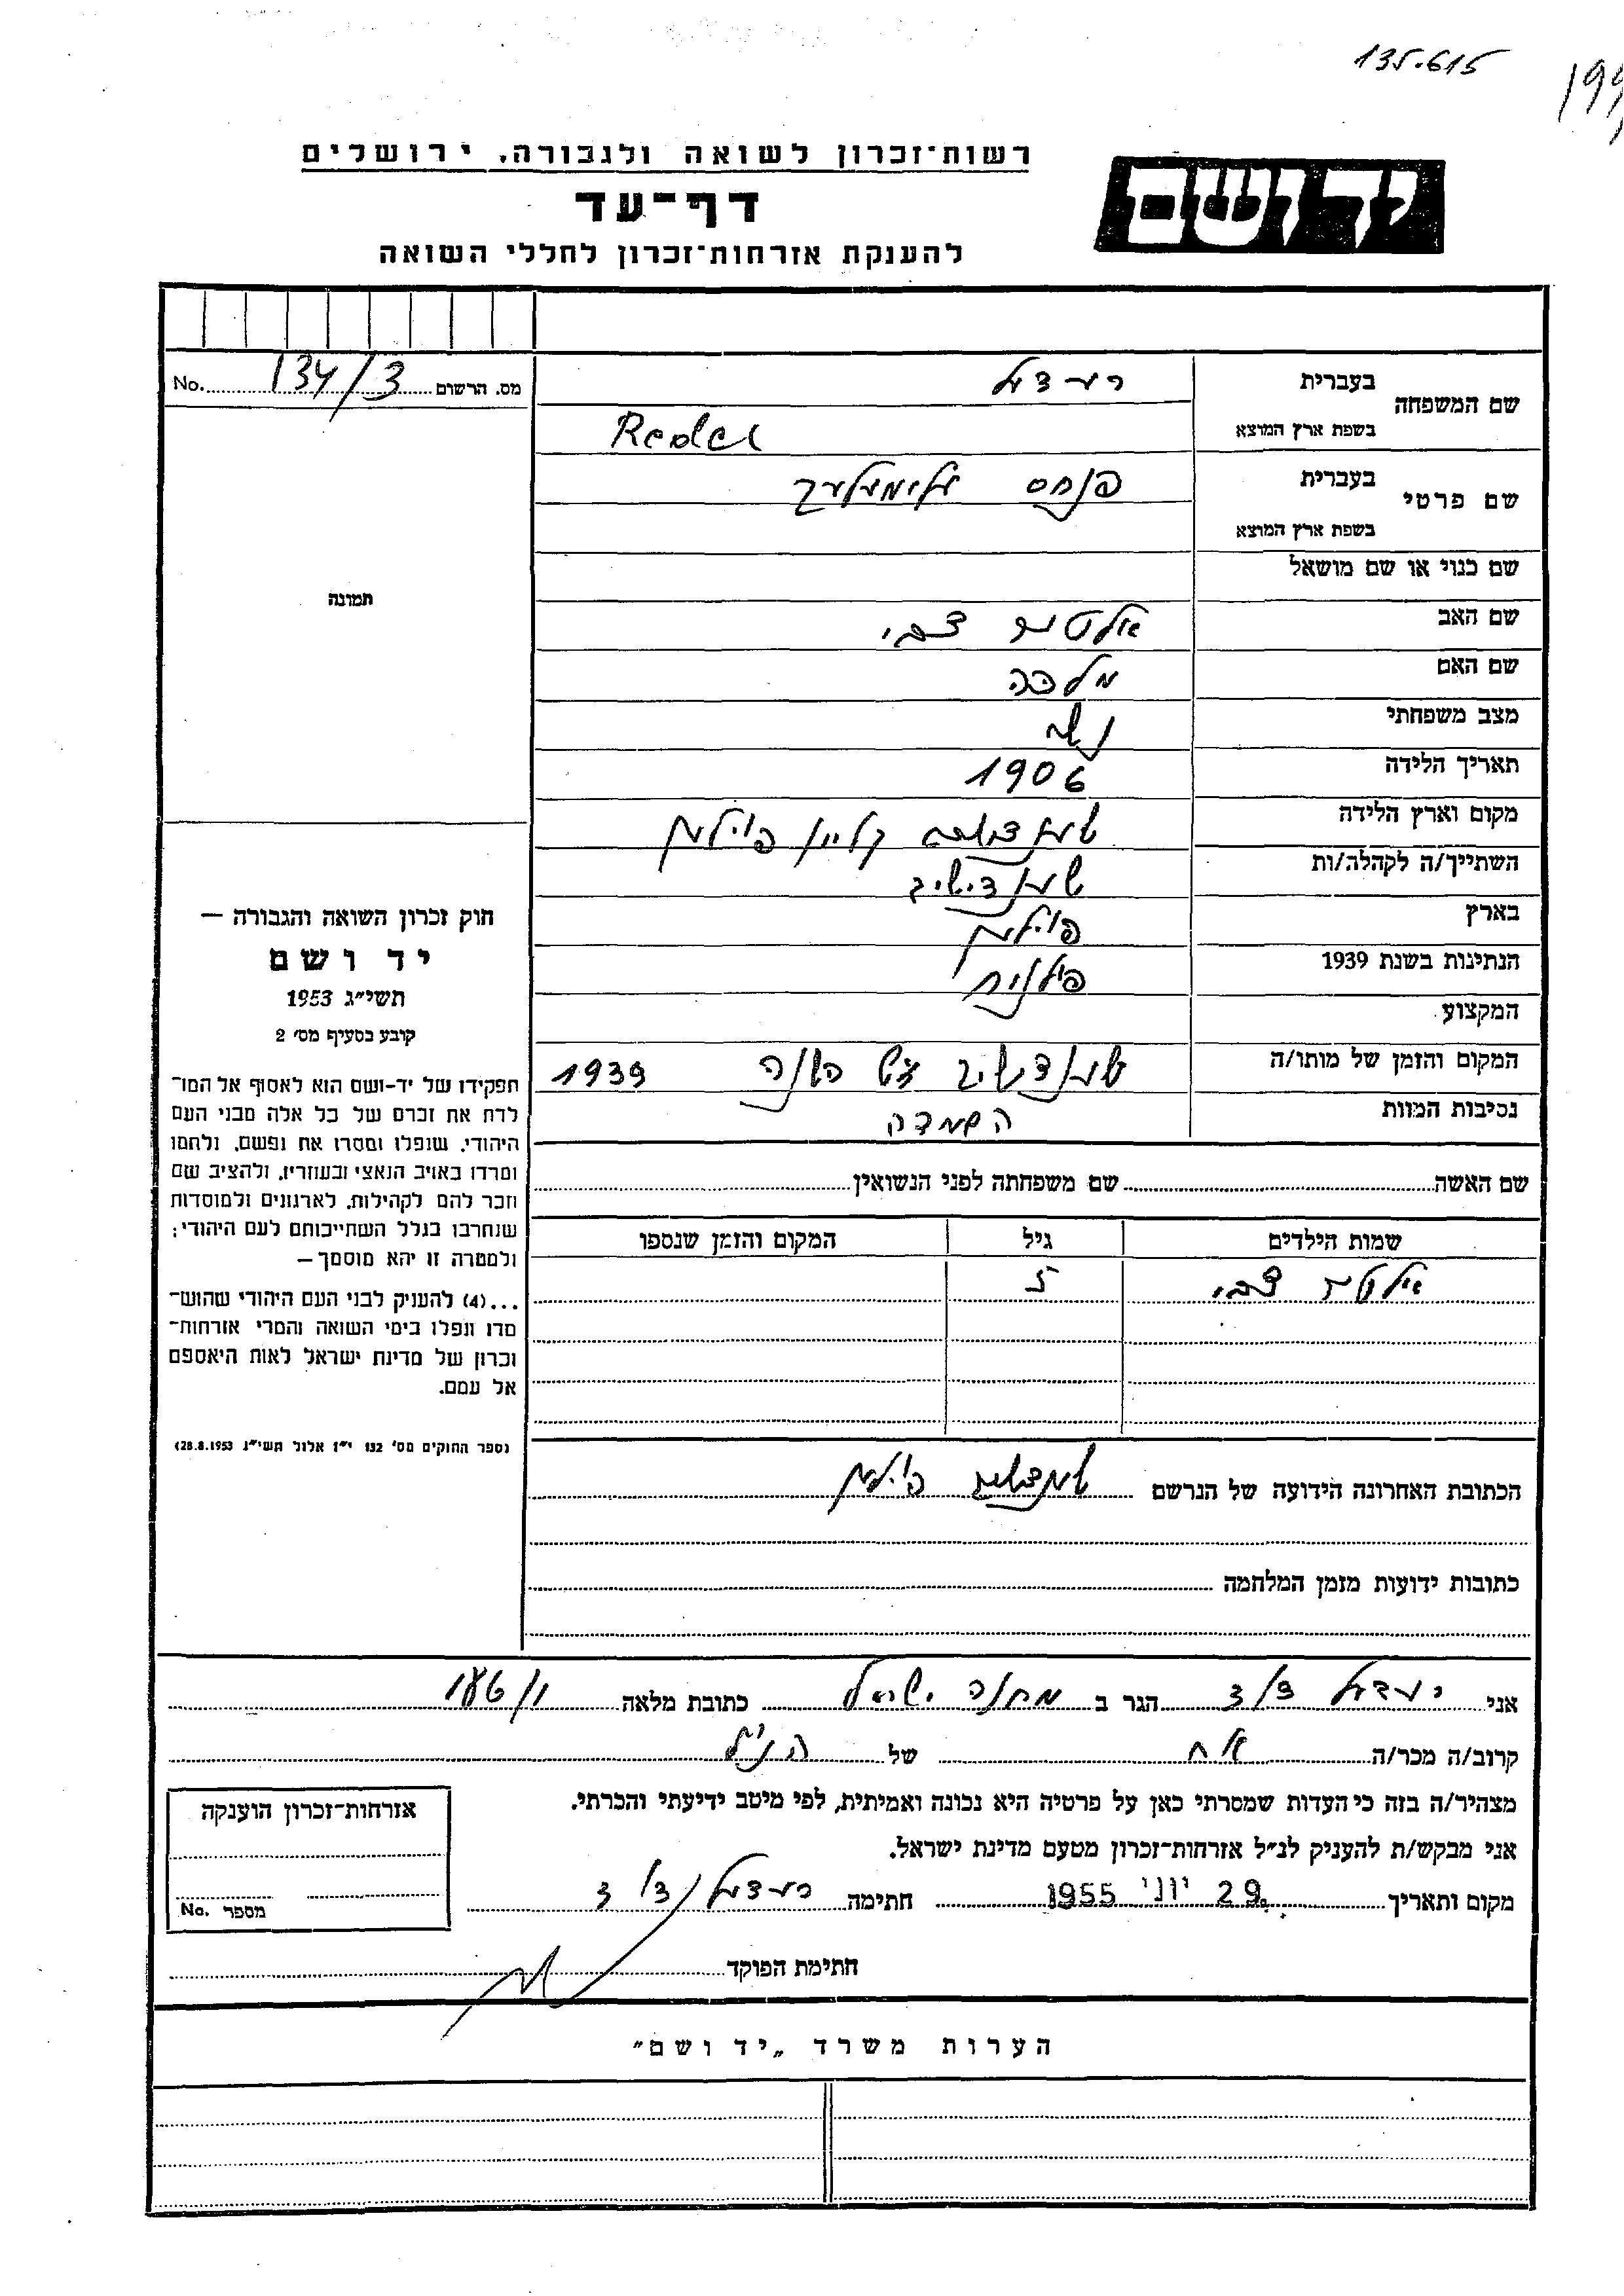 135.615
199
רשות־זכרון לשואה ולגבורה, ירושלים
יד ושם
דף־עד
להענקת אזרחות־זכרון לחללי השואה
מס. הרשום 134/3 No.
שם המשפחה
בעברית רעדעל
בשפת ארץ המוצא Redel
שם פרטי
בעברית פנחס אלימלך
בשפת ארץ המוצא
שם כנוי או שם מושאל
שם האב אלטר צבי
שם האם מלכה
מצב משפחתי נשוי
תאריך הלידה 1906
מקום וארץ הלידה פוילען
השתייך/ה לקהלה/ות
בארץ פוילען
הנתינות בשנת 1939 פולנית
המקצוע
המקום והזמן של מותו/ה 1939
נסיבות המוות השמדה
שם האשה שם משפחתה לפני הנשואין
שמות הילדים גיל המקום והזמן שנספו
אלטר צבי 5
הכתובת האחרונה הידועה של הנרשם פוילען
כתובות ידועות מזמן המלחמה
תמונה
חוק זכרון השואה והגבורה —
יד ושם
תשי״ג 1953
קובע בסעיף מס׳ 2
תפקידו של יד-ושם הוא לאסוף אל המו־
לדת את זכרם של כל אלה מבני העם
היהודי, שנפלו ומסרו את נפשם, נלחמו
ומרדו באויב הנאצי ובעוזריו, ולהציב שם
וזכר להם לקהילות, לארגונים ולמוסדות
שנחרבו בגלל השתייכותם לעם היהודי;
ולמטרה זו יהא מוסמך —
...(4) להעניק לבני העם היהודי שהוש־
מדו ונפלו בימי השואה והמרי אזרחות־
זכרון של מדינת ישראל לאות היאספם
אל עמם.
(ספר החוקים מס׳ 132 י״ז אלול תשי״ג 28.8.1953)
אני רעדעל הגר ב מחנה ישראל כתובת מלאה
קרוב/ה מכר/ה אח של הנ״ל
מצהיר/ה בזה כי העדות שמסרתי כאן על פרטיה היא נכונה ואמיתית, לפי מיטב ידיעתי והכרתי.
אני מבקש/ת להעניק לנ״ל אזרחות־זכרון מטעם מדינת ישראל.
מקום ותאריך 29. יוני 1955 חתימה רעדעל
אזרחות־זכרון הוענקה
מספר No.
חתימת הפוקד
הערות משרד „יד ושם״